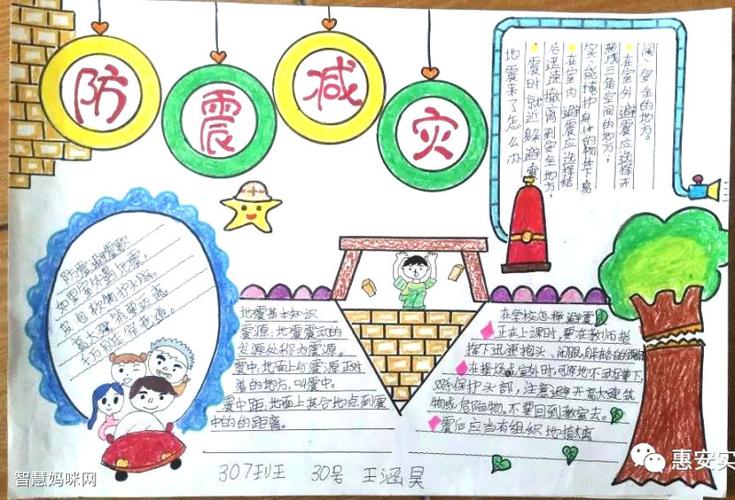 防震减灾
地震来了怎么办
震时就近躲避,震
后迅速撤离到安全地方,
在室内避震应选择结
实、能掩护身体的物体下、易
形成三角空间的地方,
在室外避震应选择开
阔、安全的地方。
防震避震歌
如果室外遇地震,
地震基本知识
震源:地震震动的
发源处称为震源。
震中:地面上与震源正对
着的地方,叫震中。
震中距:地面上其它地点到震
中的的距离。
在学校怎样避震
正在上课时,要在教师指
挥下迅速抱头、闭眼、躲在各自的课桌
在操场或室外时,可原地不动蹲下,
双手保护头部,注意避开高大建筑
物或危险物。不要回到教室去。
震后应当有组织地撤离
307班 30号 王涵昊
智慧妈咪网
惠安实